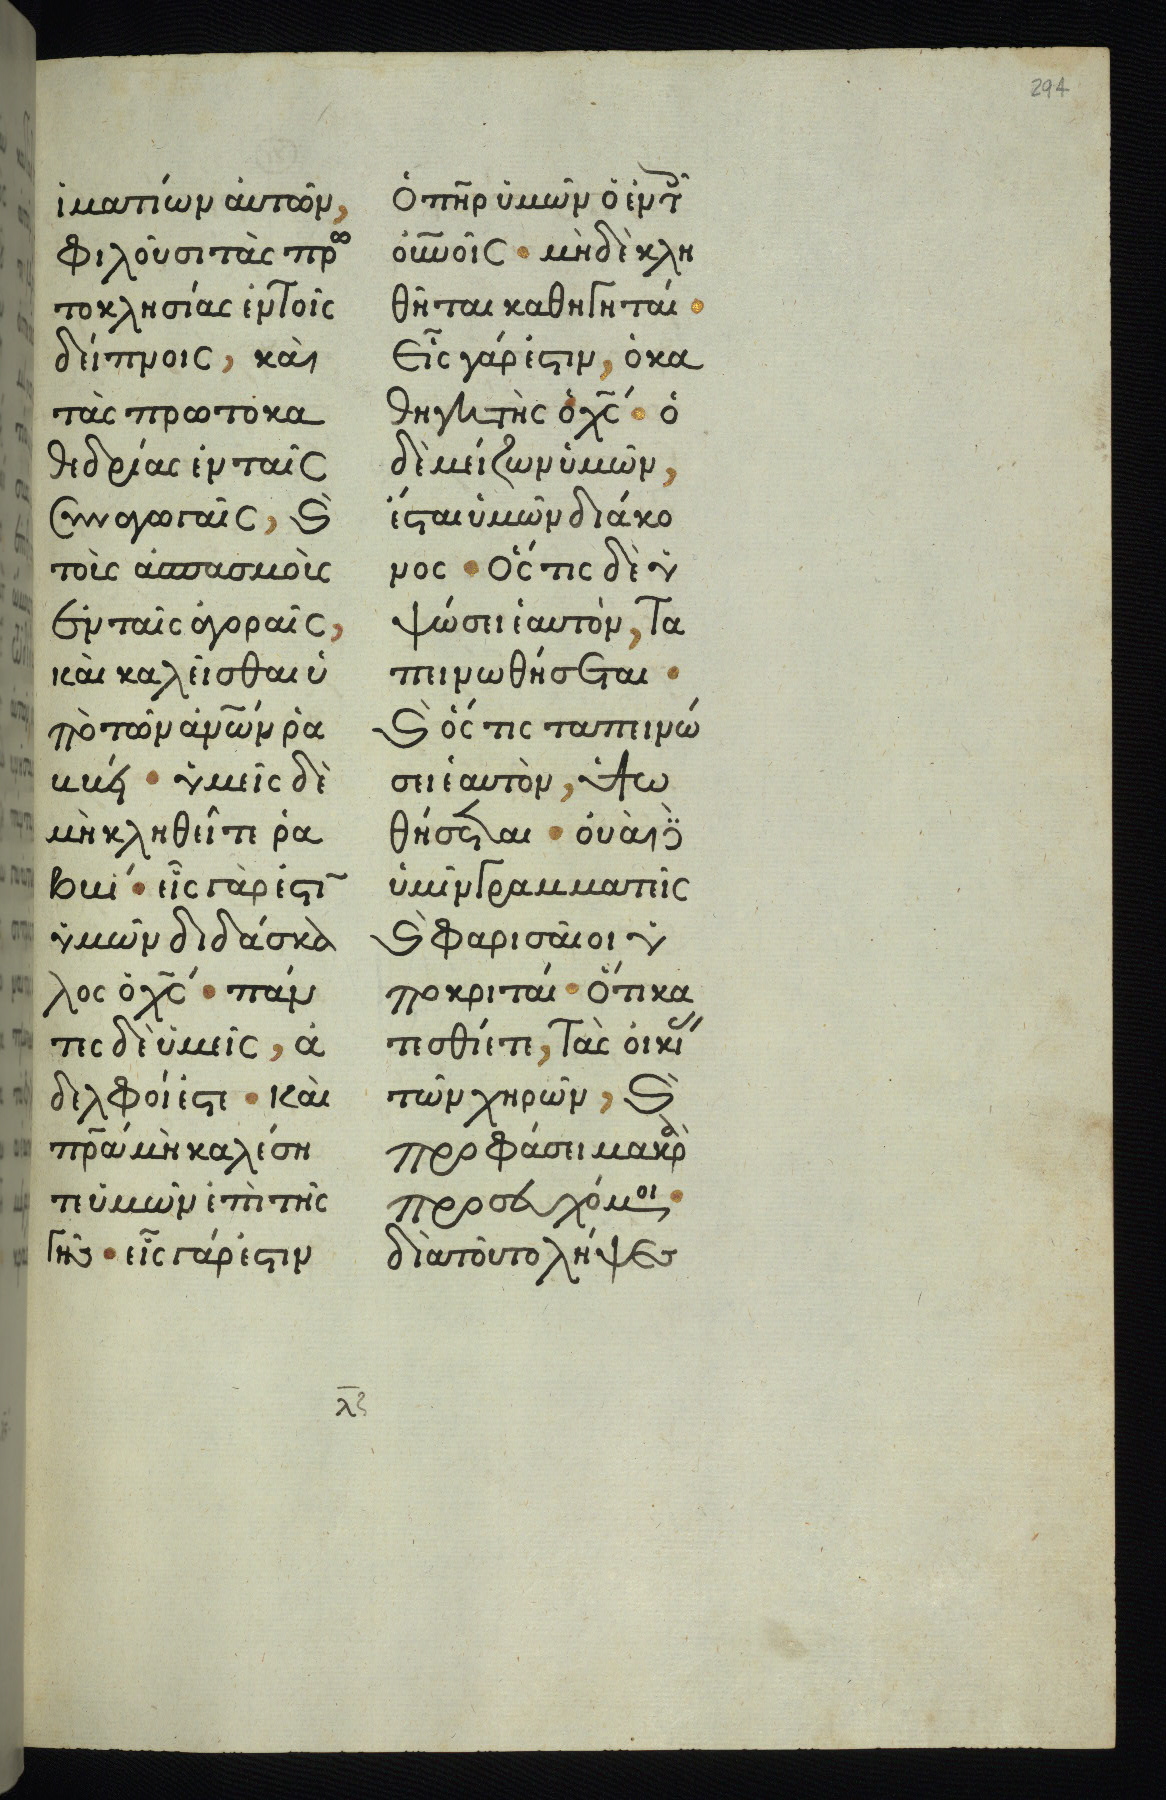 294
ἱματίων ἀυτῶν,
Φιλοῦσι τὰς πρω
τοκλησίας ἐν τοῖς
δείπνοις, κὰι
τὰς πρωτοκα
θεδρίας ἐν ταῖς
συναγωγαῖς, ϗ̀
τοὶς ἀσπασμοὶς
ἐν ταῖς ἀγοραῖς,
κὰι καλεῖσθαι ὑ
πὸ τῶν ἀν̅ω̅ν ῥα
ββί · ὑμεῖς δὲ
μὴ κληθεῖτε ῥα
ββί · εἷς γὰρ ἐστῒ
ὑμῶν διδάσκα
λος ὁ χ̅ς · πάν
τες δὲ ὑμεῖς, ἀ
δελφοί ἐστε · Κὰι
πρ̅α μὴ καλέση
τε ὑμῶν ἐπὶ τῆς
γῆς · εἷς γάρ ἐστιν
Ὁ π̅η̅ρ ὑμῶν ὁ ἐν τ
οὐ̅νοῖς · μὴδὲ κλη
θῆται καθηγηταί ·
Εἷς γάρ ἐστιν, ὁ κα
θηγητὴς ὁ χ̅ς · ὁ
δὲ μείζων ὑμῶν,
ἔσται ὑμῶν διάκο
νος · Ὅς τις δὲ ὑ
ψώσει ἑαυτὸν, τα
πεινωθήσεται ·
ϗ̀ ὅς τις ταπεινώ
σει ἑαυτὸν, ὑψω
θήσεται · ὀυὰι δὲ
ὑμῖν γραμματεῖς
ϗ̀ Φαρισᾶιοι ὑ
ποκριταί · Ὅτι κα
τεσθίετε, τὰς ὀικίας
τῶν χηρῶν, ϗ̀
προφάσει μακρὰ
προσευχόμενοι ·
διατοῦτο λήψεσ
λ̅ς